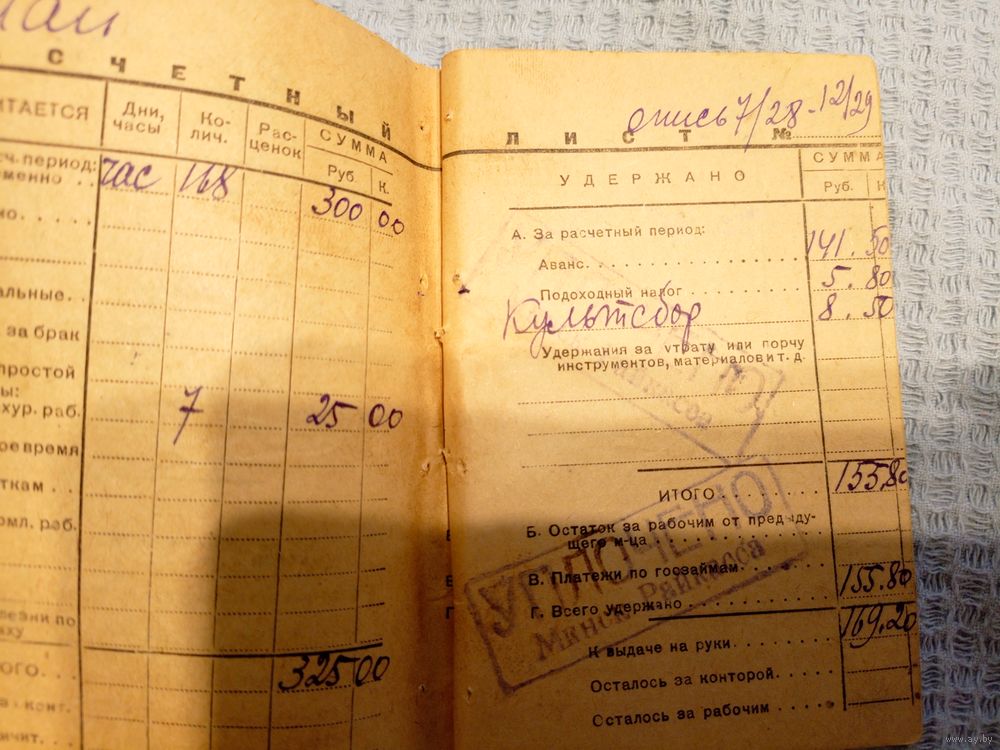 май
СЧЕТНЫЙ
ИТАЕТСЯ
Дни, часы
Ко-лич.
Рас-ценок
СУММА
Руб К.
сч. период:
еменно . . час 168 300 00
но. . . . .
альные. .
за брак
простой
ы:
хур. раб. 7 25 00
ое время
ткам . . .
рмл. раб.
лезни по
аху
ОГО. . . 325 00
за конт.
ичит. . .
опись 7/28-12/29
ЛИСТ №
УДЕРЖАНО
СУММА
Руб. К
А. За расчетный период:
Аванс. . . . 141. 50
Подоходный налог . . . 5. 80
Культсбор 8. 50
Удержания за утрату или порчу
инструментов, материалов и т. д.
ИТОГО. . . . 155.80
Б. Остаток за рабочим от предыду-
щего м-ца. . . .
В. Платежи по госзаймам. . .
Г. Всего удержано . . . 155.80
К выдаче на руки. . . . 169.20
Осталось за конторой. . . .
Осталось за рабочим . . . .
УПЛОЧЕНО
Минск. Райкасса
www.ay.by